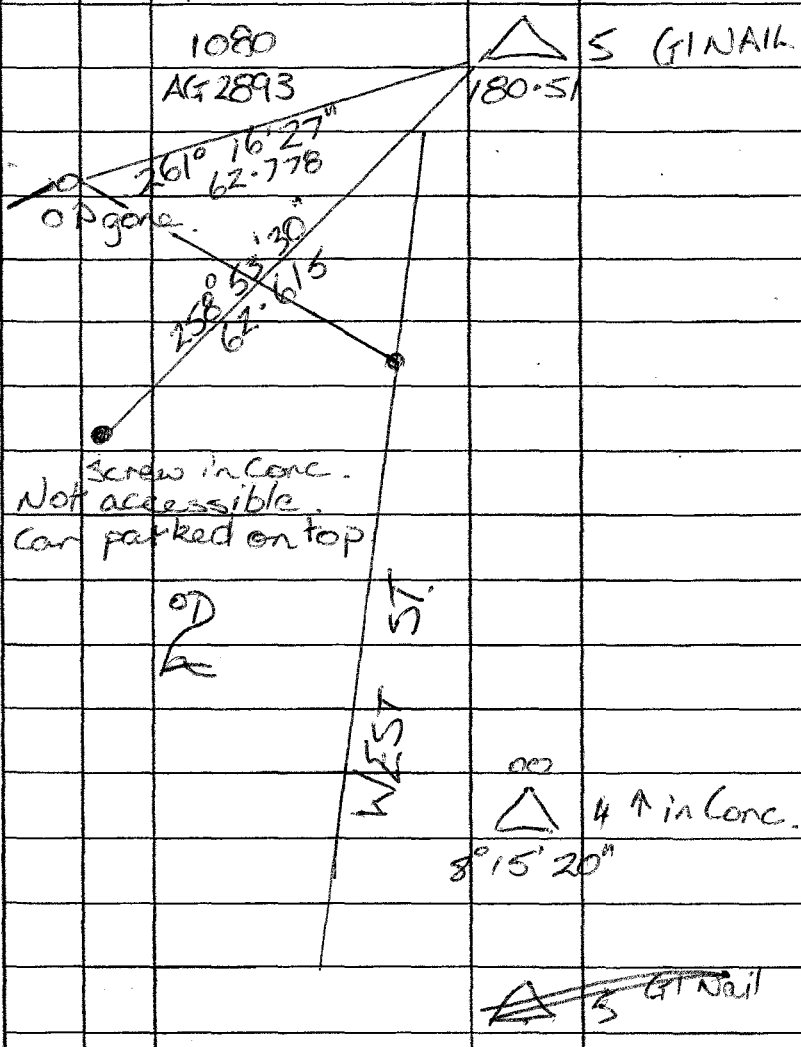 1080
AG2893
5 GI NAIL
180.51
261° 16' 27"
62.778
OP gone.
258° 53' 30"
62.615
Screw in Conc.
Not accessible.
Car parked on top
WEST ST.
4 ↑ in Conc.
8° 15' 20"
5 GI Nail